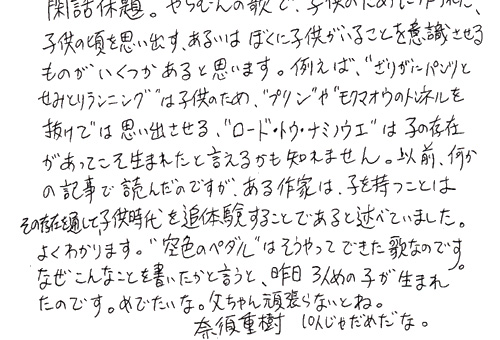 閑話休題。やちむんの歌で、子供のために作られた、
子供の頃を思い出す、あるいは ぼくに子供がいることを意識させる
ものがいくつかあると思います。例えば、"ざりがにパンツと
せみとりランニング"は子供のため、"プリン"や"モクマオウのトンネルを
抜けて"は 思い出させる、"ロード・トゥ・ナミノウエ"は 子の存在
があってこそ生まれたと言えるかも知れません。以前、何か
の記事で読んだのですが、ある作家は、子を持つことは
その存在を通して子供時代を追体験することであると述べていました。
よくわかります。"空色のペダル"はそうやってできた歌なのです。
なぜこんなことを書いたかと言うと、昨日 3人めの子が生まれ
たのです。めでたいな。父ちゃん頑張らないとね。
奈須重樹 10人じゃだめだな。